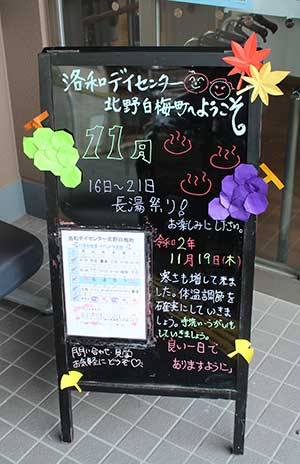 洛和デイセンター
北野白梅町へようこそ
11月
16日~21日
長湯祭り!
お楽しみに
令和2年
11月19日(木)
寒さも増して来ま
した。体温調節を
確実にしていきま
しょう。手洗い・うがいも
していきましょう。
良い一日で
ありますように」
洛和デイセンター北野白梅町
問い合わせ・見学
お気軽にどうぞ♡